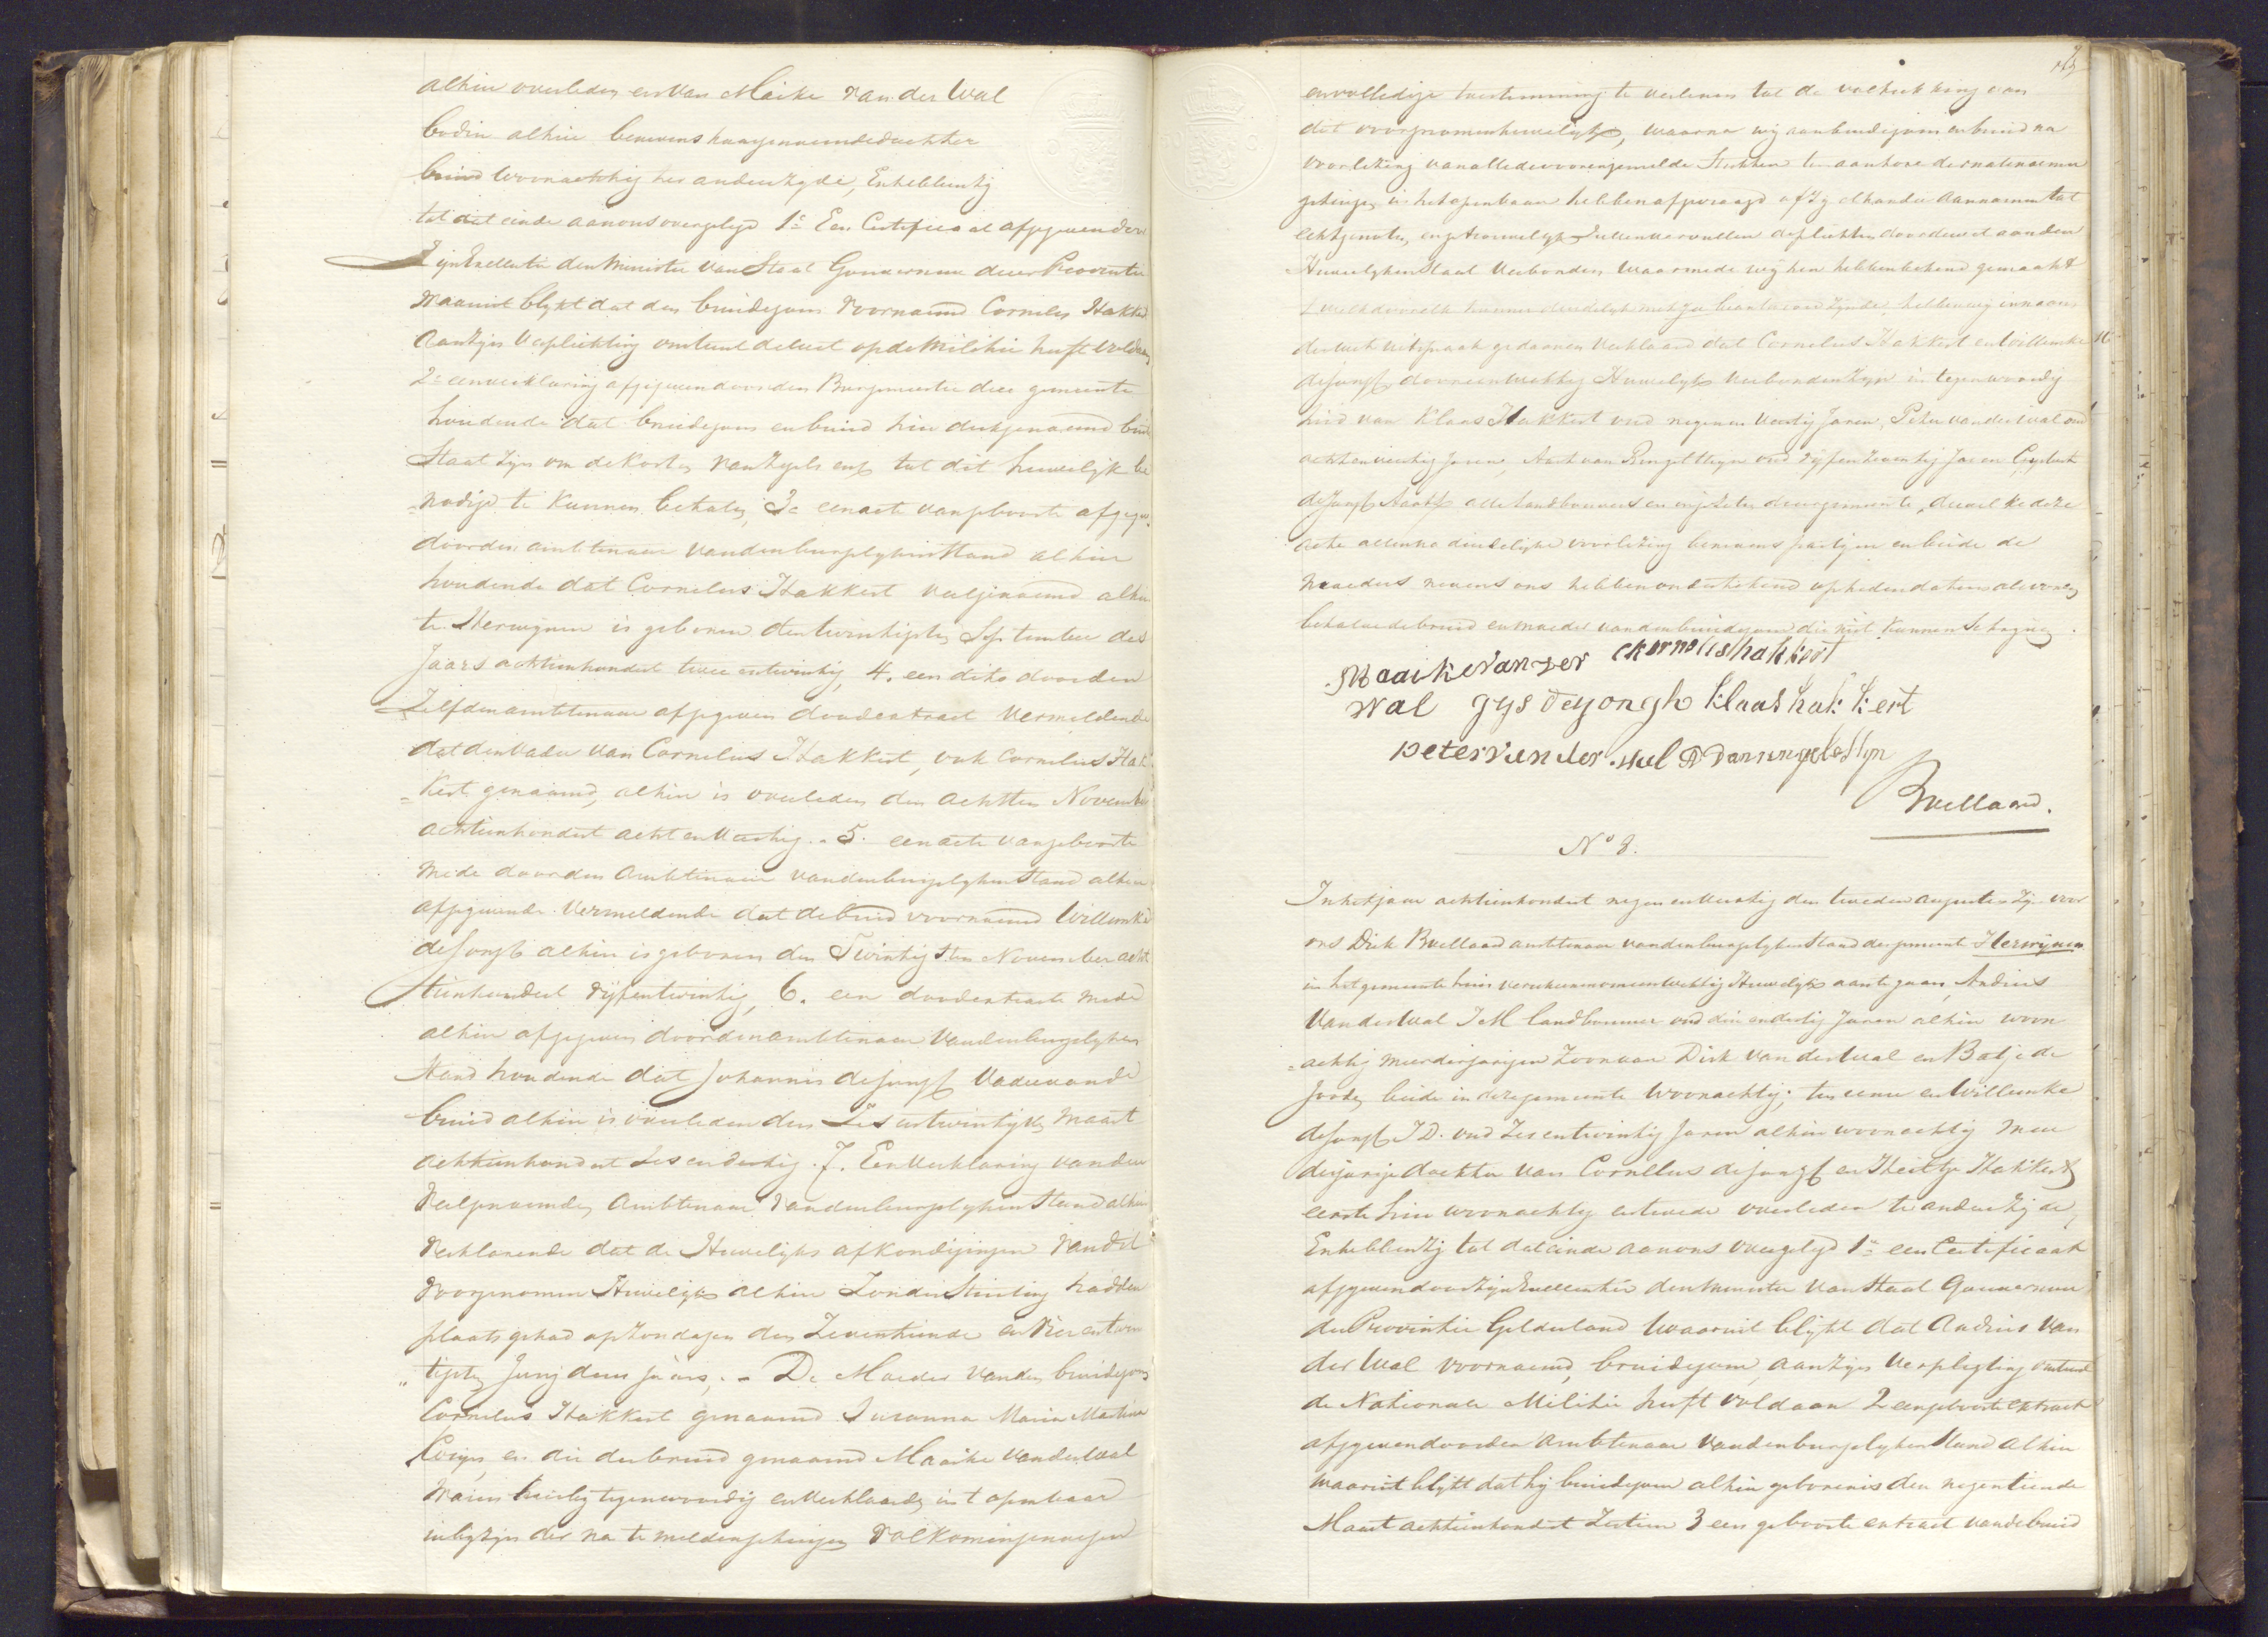 alhier overleden en van Maike van der Wal
bodin alhier benevens haargenaemde dochter
bruid woonachtig ter anderezyde, En hebben zij
tot dit einde aan ons overgelegd 1e Een Certificaat afgegeven door
Zyn Excellentie den Minister van Staat Gouverneur dezer Provintie
waaruit blykt dat den bruidegom voornaamd Cornelis Hakkert
aan zyn verplichting omtrent de Nationale Militie heeft voldaan
2e een verklaring afgegeven door den Burgemeester dezer gemeente
houdende dat bruidegom en bruid hier derkgenaemd buiten
Staat zyn om de kosten van zegels enz tot dit huwelijk be
nodigd te kunnen betalen, 3e een acte van geboorte afgegeven
door den ambtenaar van den burgelyken Stand alhier
houdende dat Cornelus Hakkert veelgenaemd alhier
te Herwynen is geboren den twintigsten September des
Jaars achttienhondert twee entwintig, 4. een dito door den
Zelfden ambtenaar afgegeven doodextract vermeldende
dat den vader van Cornelus Hakkert, ook Cornelus Hak
kert genaamd, alhier is overleden den achtten November
achttienhondert acht en veertig. 5. een acte van geboorte
mede door den ambtenaar van den burgelyken Stand alhier
afgegevende vermeldende dat de bruid voornaamd Willemke
de Jongh alhier is geboren den Twintigsten November acht
tienhondert vijfentwintig, 6. een doodextract mede
alhier afgegeven door den ambtenaar van den burgelyken
Stand houdende dat Johannis de Jongh Vader van de
bruid alhier is overleden den Zes entwintigsten Maart
achttienhondert Zes en dertig. 7. Een Verklaring van den
veelgenaemden Ambtenaar van den burgelyken Stand alhier
verklarende dat de Huwelijks afkondigingen van dit
voorgenomen Huwelijk alhier Zonder Stuiting hadden
plaats gehad op Zondagen den Zeventiende en Vier entwin
tigsten Junij dezes jaars, De Moeder van den bruidegom
Cornelus Hakkert genaamd Susanna Maria Martina
en die der bruid genaamd Maaike van der Wal
waren hierbij tegenwoordig en verklaarden in t openbaar
in bijzyn der na te melden getuigen volkomen genoegen
en volledige toestemming te verlenen tot de voltrekking van
dit voorgenomen huwelijk, waarna wij aan bruidegom en bruid na
voorlezing van alle de vorengemelde Stukken ten aanhore der na te noemen
getuigen in het openbaar hebben afgevraagd of zy elkander aannemen tot
echtgenoten, en getrouwelyk Zullen vervullen de plichten door de wet aan den
Huwelyken Staat verbonden waarmede wij hen hebben bekend gemaakt
hebben wij in naam
der wet uitspraak gedaan en verklaard dat Cornelus Hakkert en Willemke
de Jongh door een wettig Huwelijk verbonden Zyn in tegenwoordig
heid van Klaas Hakkert oud negen en veertig Jaren, Peter van der Wal oud
acht en veertig Jaren, Aart van Ringelesteyn oud vijf en twintig Jaren Gysbert
de Jongh alle landbouwers en ingezetenen dezer gemeente, dewelke deze
acte alleen na duidelijke voorlezing benevens partyen en beide de
moeders nevens ons hebben ondertekend op heden datum als voren
behalve de bruid en moeder van den bruidegom die niet kunnen Schryven.
Maaike van der ckornelishakkert
Wal gys de yongh klaas hakkert
peter van der wal A van ringelestyn
BVellaard.
No 8.
In het jaar achttienhondert negen en veertig den tweeden augustus Zyn voor
ons Dirk BVellaard ambtenaar van den burgelyken Stand der gemeente Herwynen
in het gemeente huis verschenen om een wettig Huwelijk aan te gaan, Andries
van der Wal J M landbouwer oud drie en dertig Jaren alhier woon
achtig meerderjarigen Zoon van Dirk van der Wal en Batje de
Joode, beide in deze gemeente woonachtig; ten eenen en Willemke
de Jongh J.D. oud Zes entwintig Jaren alhier woonachtig meer
derjarige dochter van Cornelus de Jongh en Hakkert
eerste hier woonachtig en tweede overleden te anderezyde,
En hebben Zij tot dat einde aan ons overgelegd 1e een Certificaat
afgegeven door Zijn Excellentie den Minister van Staat Gouverneur
der Provintie Gelderland waaruit blijkt dat Andries van
der Wal voornaemd, bruidegom, aan Zijn Verpligting omtrent
de Nationale Militie heeft voldaan 2 een geboorte extract
afgegeven door den Ambtenaar van den burgelyken Stand alhier
waaruit blijkt dat hij bruidegom alhier geboren is den negentiende
Maart achttienhondert Zestien 3 een geboorte extract van de bruid